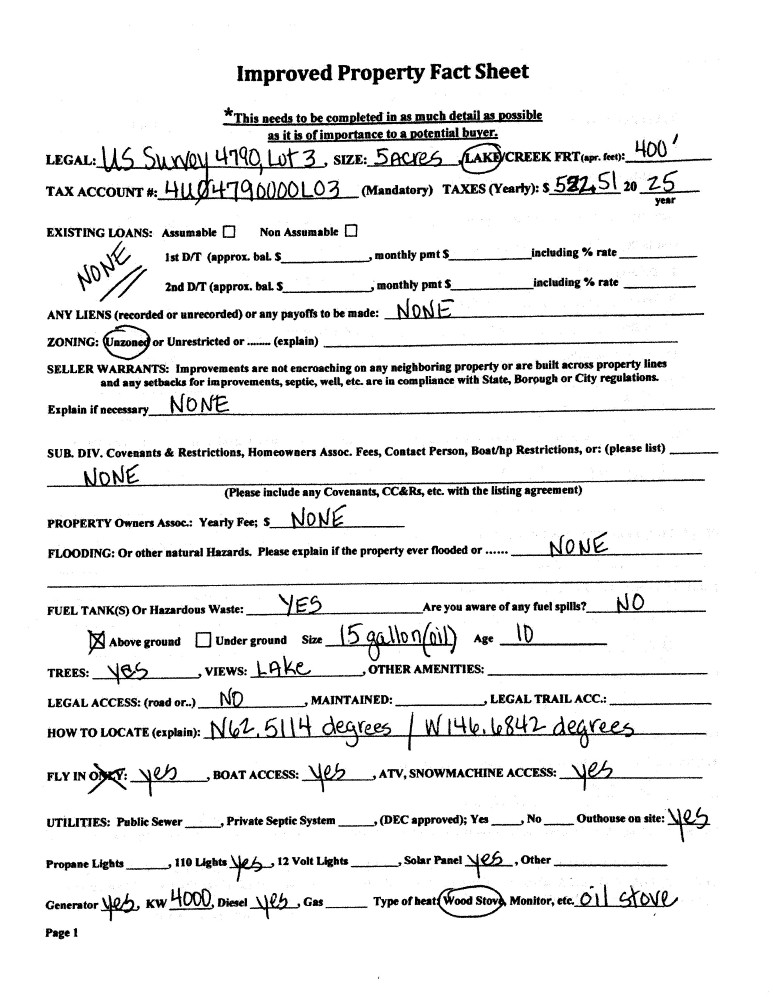 Improved Property Fact Sheet
*This needs to be completed in as much detail as possible
as it is of importance to a potential buyer.
LEGAL: US Survey 4790, Lot 3, SIZE: 5 Acres, LAKE/CREEK FRT(apr. feet): 400'
TAX ACCOUNT #: 4U04790000L03 (Mandatory) TAXES (Yearly): $ 522.51 20 25
year
EXISTING LOANS: Assumable ☐ Non Assumable ☐
NONE
1st D/T (approx. bal. $________, monthly pmt $________including % rate ________
2nd D/T (approx. bal. $________, monthly pmt $________including % rate ________
ANY LIENS (recorded or unrecorded) or any payoffs to be made: NONE
ZONING: Unzoned or Unrestricted or ........ (explain) ________
SELLER WARRANTS: Improvements are not encroaching on any neighboring property or are built across property lines
and any setbacks for improvements, septic, well, etc. are in compliance with State, Borough or City regulations.
Explain if necessary NONE
SUB. DIV. Covenants & Restrictions, Homeowners Assoc. Fees, Contact Person, Boat/hp Restrictions, or: (please list) ________
NONE
(Please include any Covenants, CC&Rs, etc. with the listing agreement)
PROPERTY Owners Assoc.: Yearly Fee; $ NONE
FLOODING: Or other natural Hazards. Please explain if the property ever flooded or ...... NONE
FUEL TANK(S) Or Hazardous Waste: YES Are you aware of any fuel spills? NO
☒ Above ground ☐ Under ground Size 15 gallon(oil) Age 10
TREES: yes, VIEWS: LAKe, OTHER AMENITIES: ________
LEGAL ACCESS: (road or..) NO, MAINTAINED: ________, LEGAL TRAIL ACC.: ________
HOW TO LOCATE (explain): N62.5114 degrees / W146.6842 degrees
FLY IN ONLY: yes, BOAT ACCESS: yes, ATV, SNOWMACHINE ACCESS: yes
UTILITIES: Public Sewer _____, Private Septic System _____, (DEC approved); Yes _____, No _____ Outhouse on site: yes
Propane Lights ______, 110 Lights yes, 12 Volt Lights ______, Solar Panel yes, Other ________
Generator yes, KW 4000, Diesel yes, Gas ______ Type of heat: Wood Stove, Monitor, etc. oil stove
Page 1